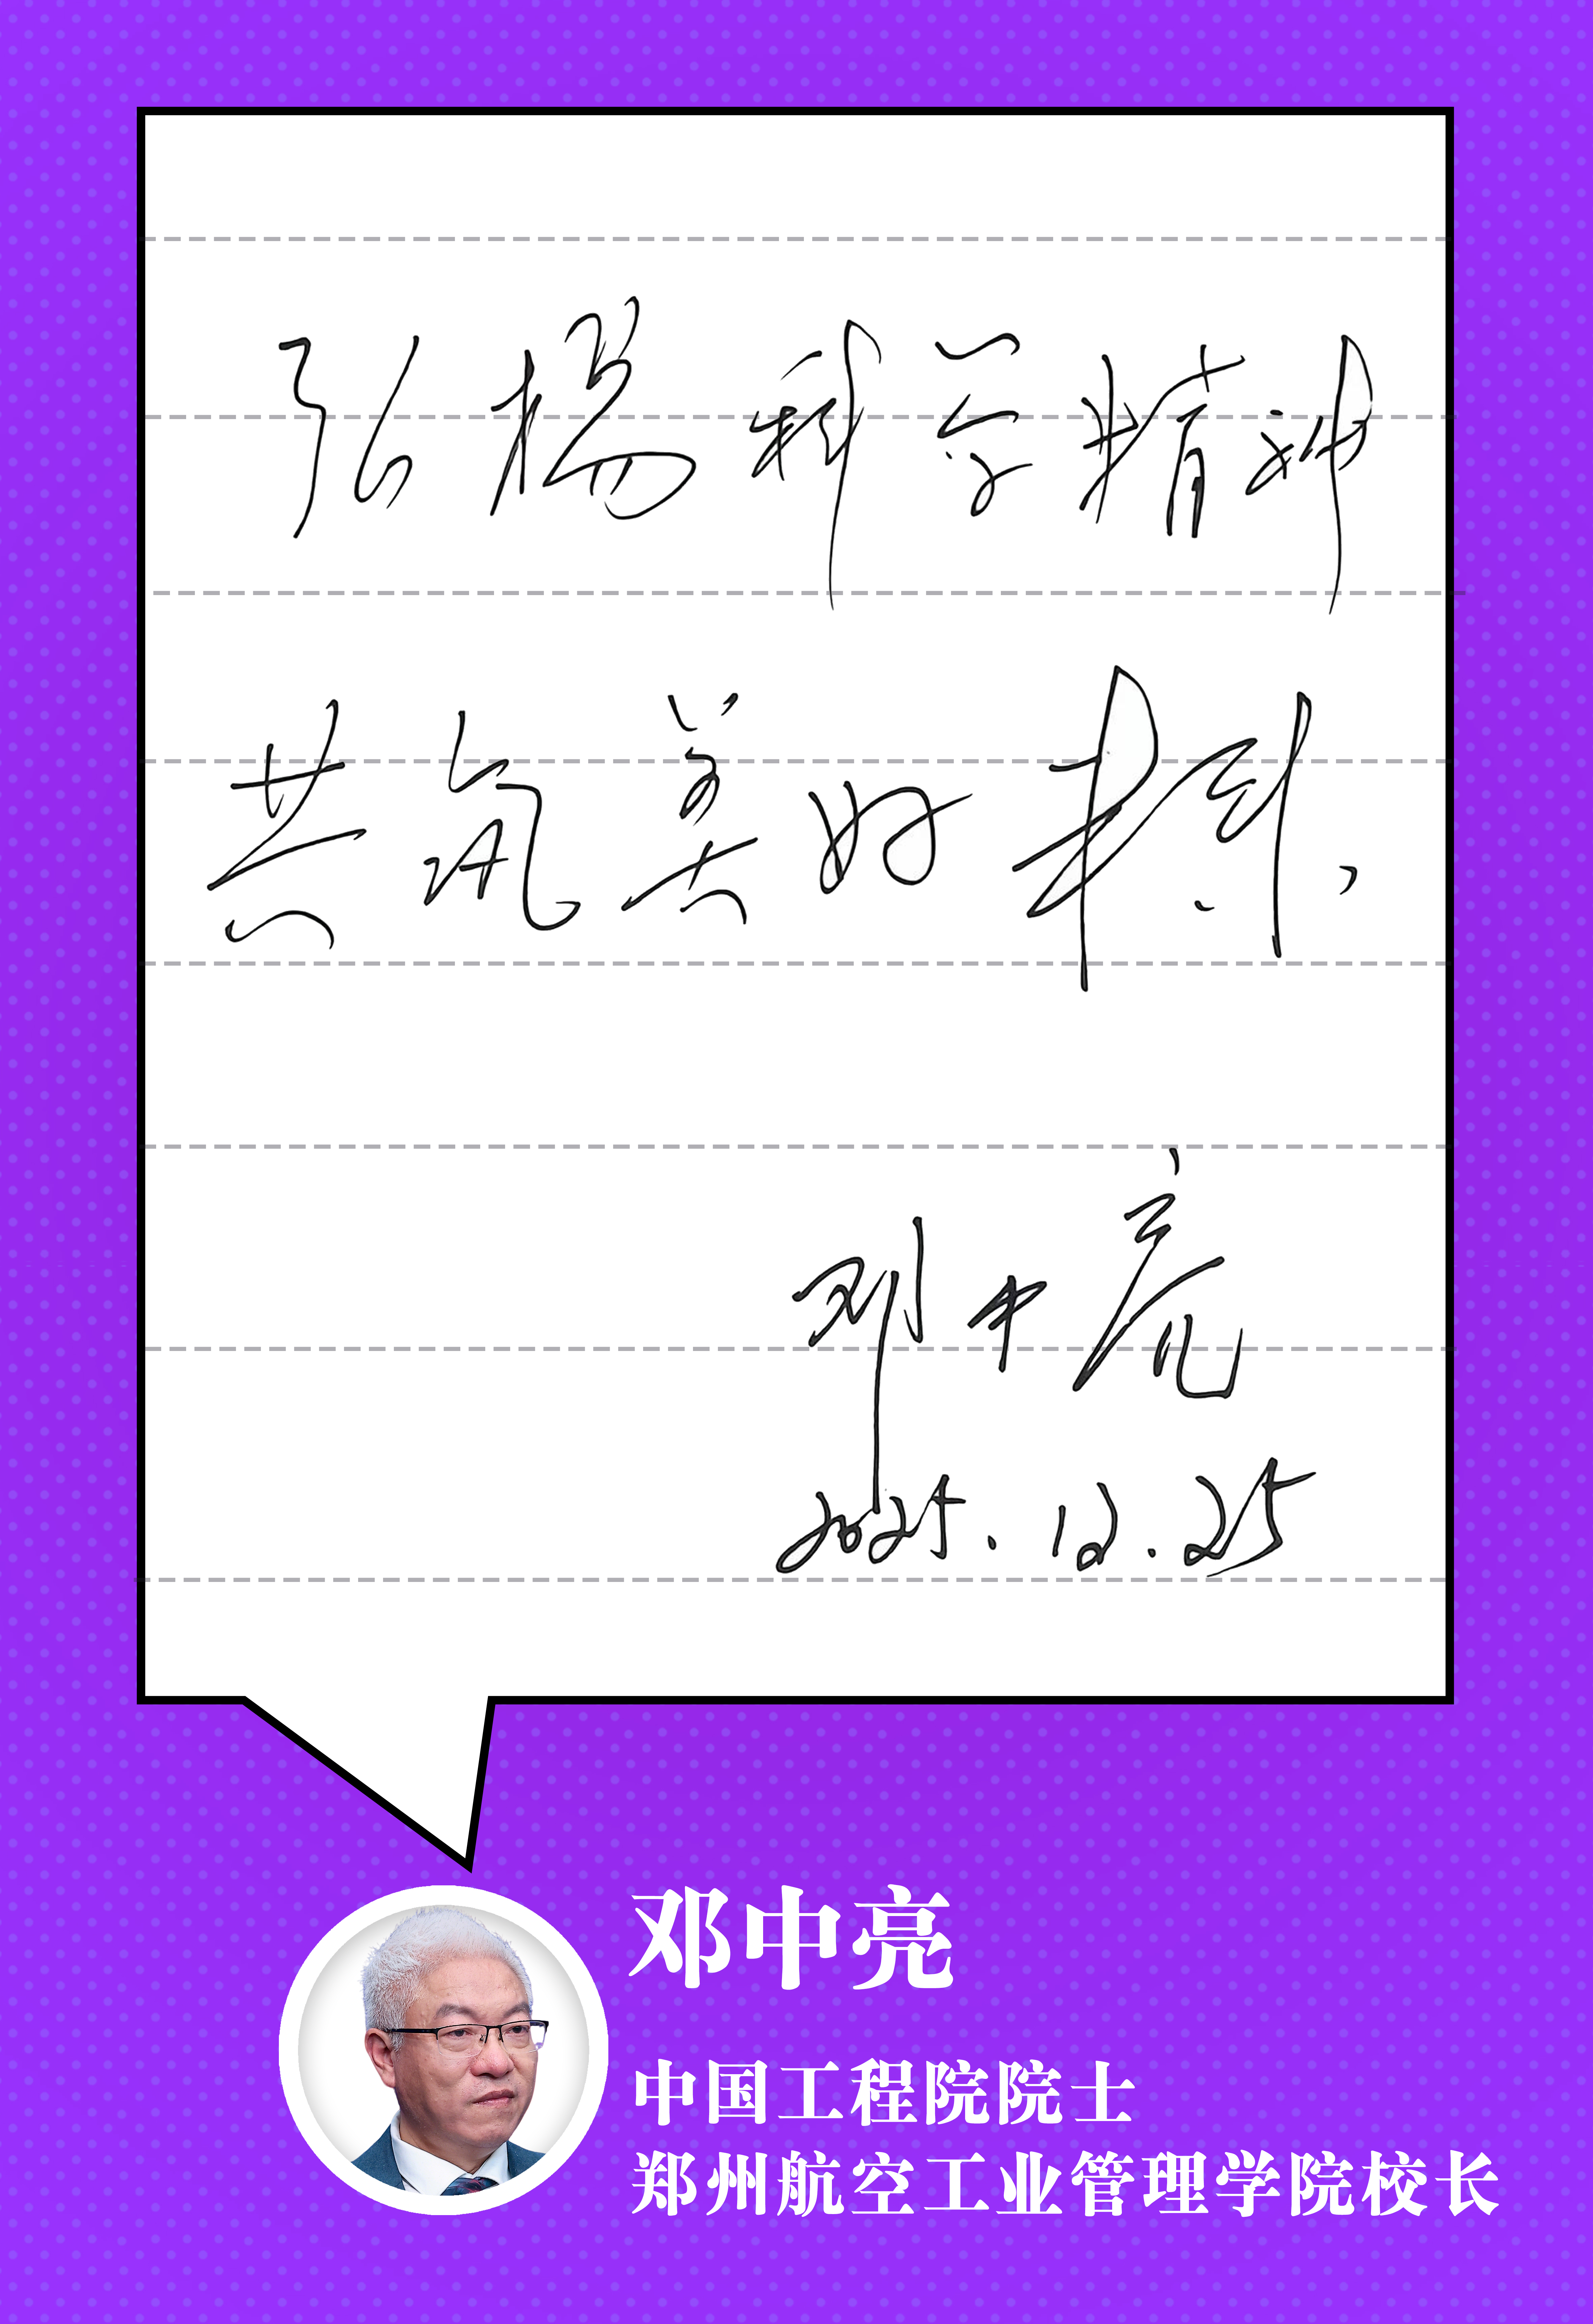 弘扬科学精神
共筑美好
邓中亮
2025.12.25
邓中亮
中国工程院院士
郑州航空工业管理学院校长